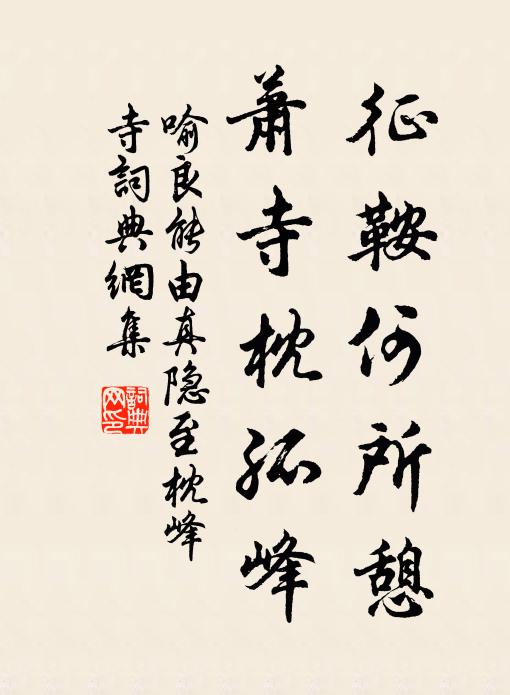 征鞍何所憩
蕭寺枕孤峰
喻良能由真隐至枕峰
寺詞典網集
詞典
网印